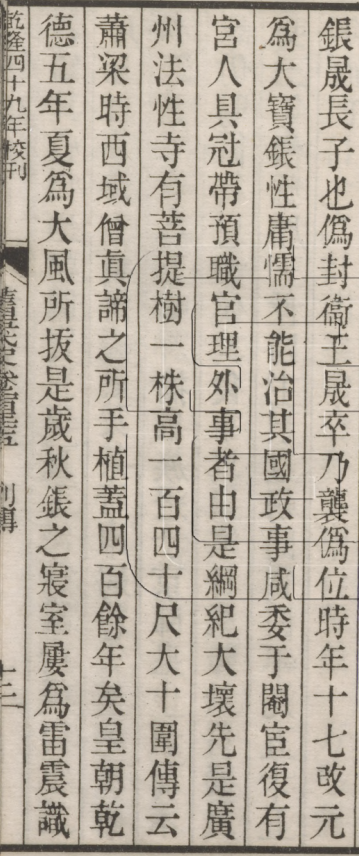 鋹晟長子也僞封衞王晟卒乃襲僞位時年十七改元
爲大寶鋹性庸懦不能治其國政事咸委于閹宦復有
宮人具冠帶預職官理外事者由是綱紀大壞先是廣
州法性寺有菩提樹一株高一百四十尺大十圍傳云
蕭梁時西域僧眞諦之所手植蓋四百餘年矣皇朝乾
德五年夏爲大風所拔是歲秋鋹之寢室屢爲雷震識
乾隆四十九年校刊
列傳